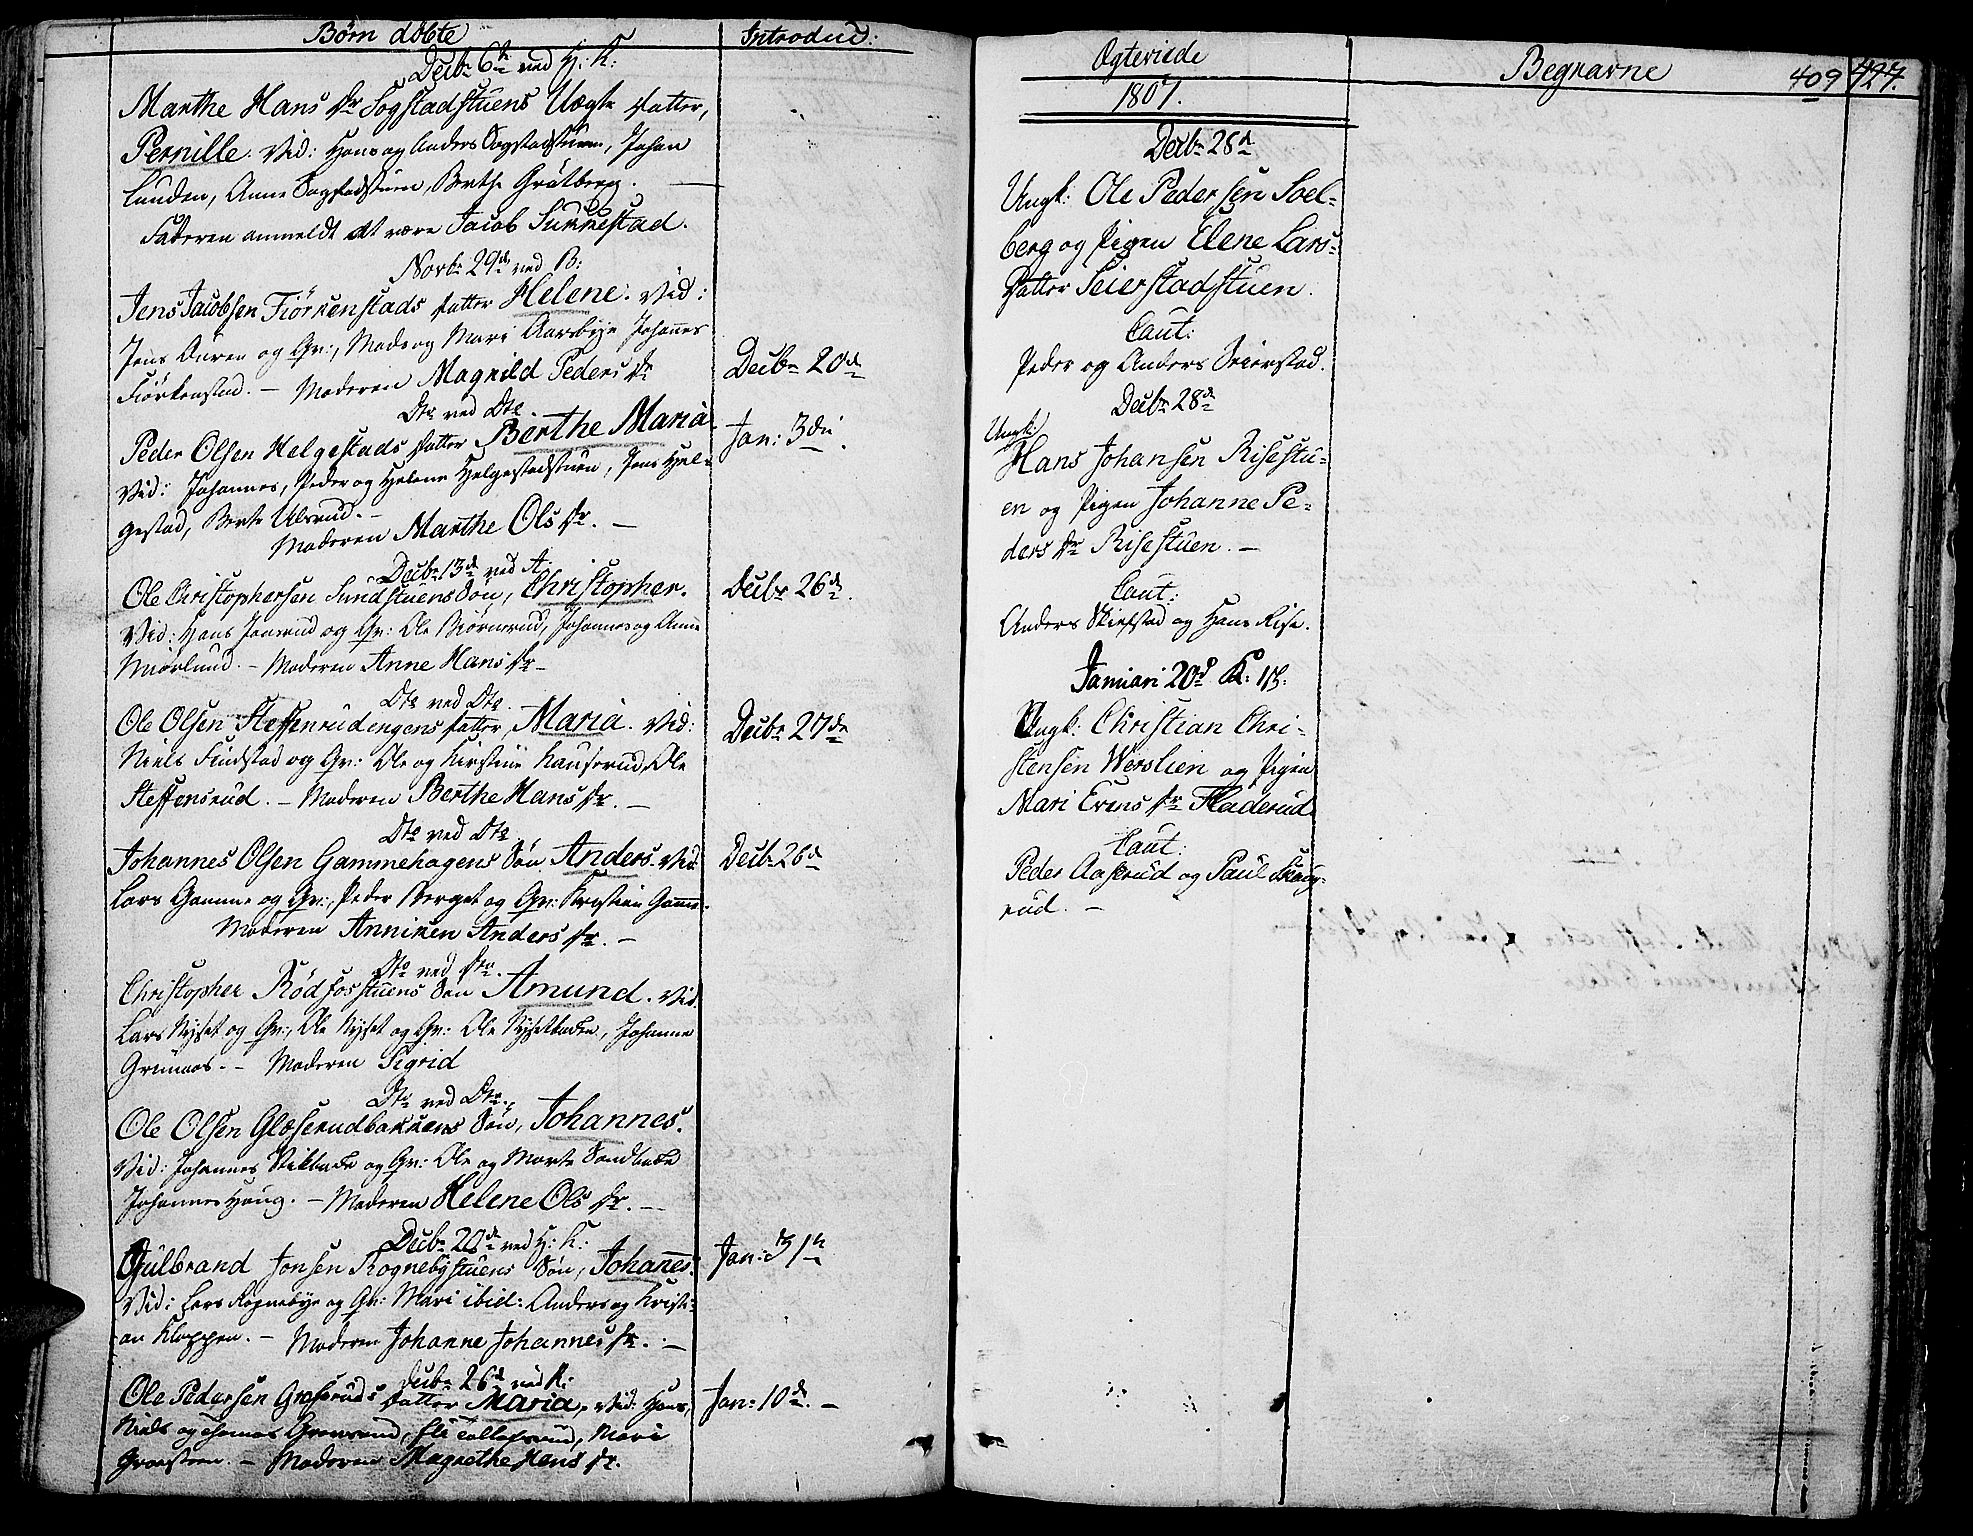 Børn døbte
Introdud:
Decbr 6te ved H: K:
Marthe Hans dr Sogstadstuens Uægte datter,
Pernille. Vid: Hans og Anders Sogstadstuen, Johan
Lunden, Anne Sogstadstuen, Berthe Gråtberg.
Faderen anmeldt at være Jacob Sukkestad.
Novbr 29de ved B:
Jens Jacobsen Fiørkenstads datter Helene. Vid:
Jens Auren og Gv:, Mads og Mari Aarsbye Johannes
Fiørkenstad. – Moderen Magnild Peders dr
Decbr 20de
Dto ved Dto.
Peder Olsen Helgestads datter Berthe Maria
Jan: 3die
Vid: Johannes, Peder og Helene Helgestadstuen, Jens Hel-
gestad, Berte Ulsrud. –
Moderen Marthe Ols dr. –
Decbr 13de ved A:
Ole Christophersen Sundstuens Søn, Christopher.
Decbr 26de.
Vid: Hans Jensrud og Gv: Ole Biørnerud, Johannes og Anne
Miørlund. – Moderen Anne Hans dr –
Dto ved Dto.
Ole Olsen Steffenrudengens datter, Maria. Vid:
Decbr 27de
Niels Findstad og Gv: Ole og Kirstine Lauserud, Ole
Steffensrud. – Moderen Berthe Hans dr. –
Dto ved Dto
Johannes Olsen Gammehagens Søn Anders. Vid:
Decbr 26de
Lars Gamme og Gv:, Peder Berget og Gv: Kirstine Gamme.
Moderen Anniken Anders dr. –
Dto ved Dto.
Christopher Rødfosstuens Søn Amund. Vid
Lars Nyset og Gv:, Ole Nyset og Gv: Ole Nysetbakke, Johanne
Grimaas. – Moderen Sigrid
Dto ved Dto.
Ole Olsen Glæserudbakkens Søn, Johannes.
Vid: Johannes Stikbakke og Gv: Ole og Marte Sandbakke
Johannes Haug. – Moderen Helene Ols dr. –
Decbr 20de ved H: K:
Gulbrand Jonsen Rognebystuens Søn, Johannes.
Jan: 31te
Vid: Lars Rognebye og Gv: Mari ibid: Anders og Kristi-
an Kloppen. – Moderen Johanne Johannes dr. –
Decbr 26de ved K:
Ole Pedersen Græserud's datter Maria, Vid: Hans,
Jan: 10de. –
Niels og Thomas Græserud, Eli Tollefsrud, Mari
Graasteen. – Moderen Magrethe Hans dr.
Ægteviede
Begravne
409 727.
1807.
Decbr 28de
Ungk: Ole Pedersen Soel-
berg og Pigen Elene Lars-
datter Seierstadstuen.
Caut:
Peder og Anders Seierstad.
Decbr 28de
Ungk:
Hans Johansen Risestu-
en og Pigen Johanne Pe-
ders dr Risestuen. –
Caut:
Anders Skiefstad og Hans Rise.
Januari 20d K:
Ungk: Christian Chri-
stensen Werslien og Pigen
Mari Evens dr Fladerud
Caut:
Peder Aaserud og Paul Skaug-
rud. –